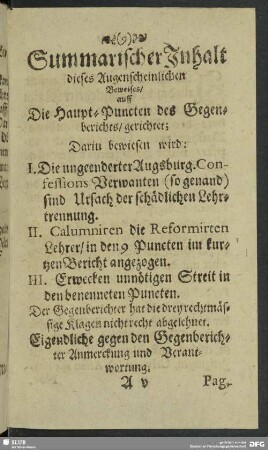 (9)
Summarischer Inhalt
dieses Augenscheinlichen
Beweises/
auff
Die Haupt-Puncten des Gegen-
berichts/gerichtet;
Darin bewiesen wird:
I. Die ungeenderter Augsburg. Con-
fessions Verwanten (so genand)
sind Ursach der schädlichen Lehr-
trennung.
II. Calumniren die Reformirten
Lehrer/ in den 9 Puncten im kur-
tzen Bericht angezogen.
III. Erwecken unnötigen Streit in
den benenneten Puncten.
Der Gegenberichter hat die drey rechtmäs-
sige Klagen nicht recht abgelehnet.
Eigendliche gegen den Gegenberich-
ter Anmerckung und Verant-
wortung.
A v
Pag.
SLUB
DFG